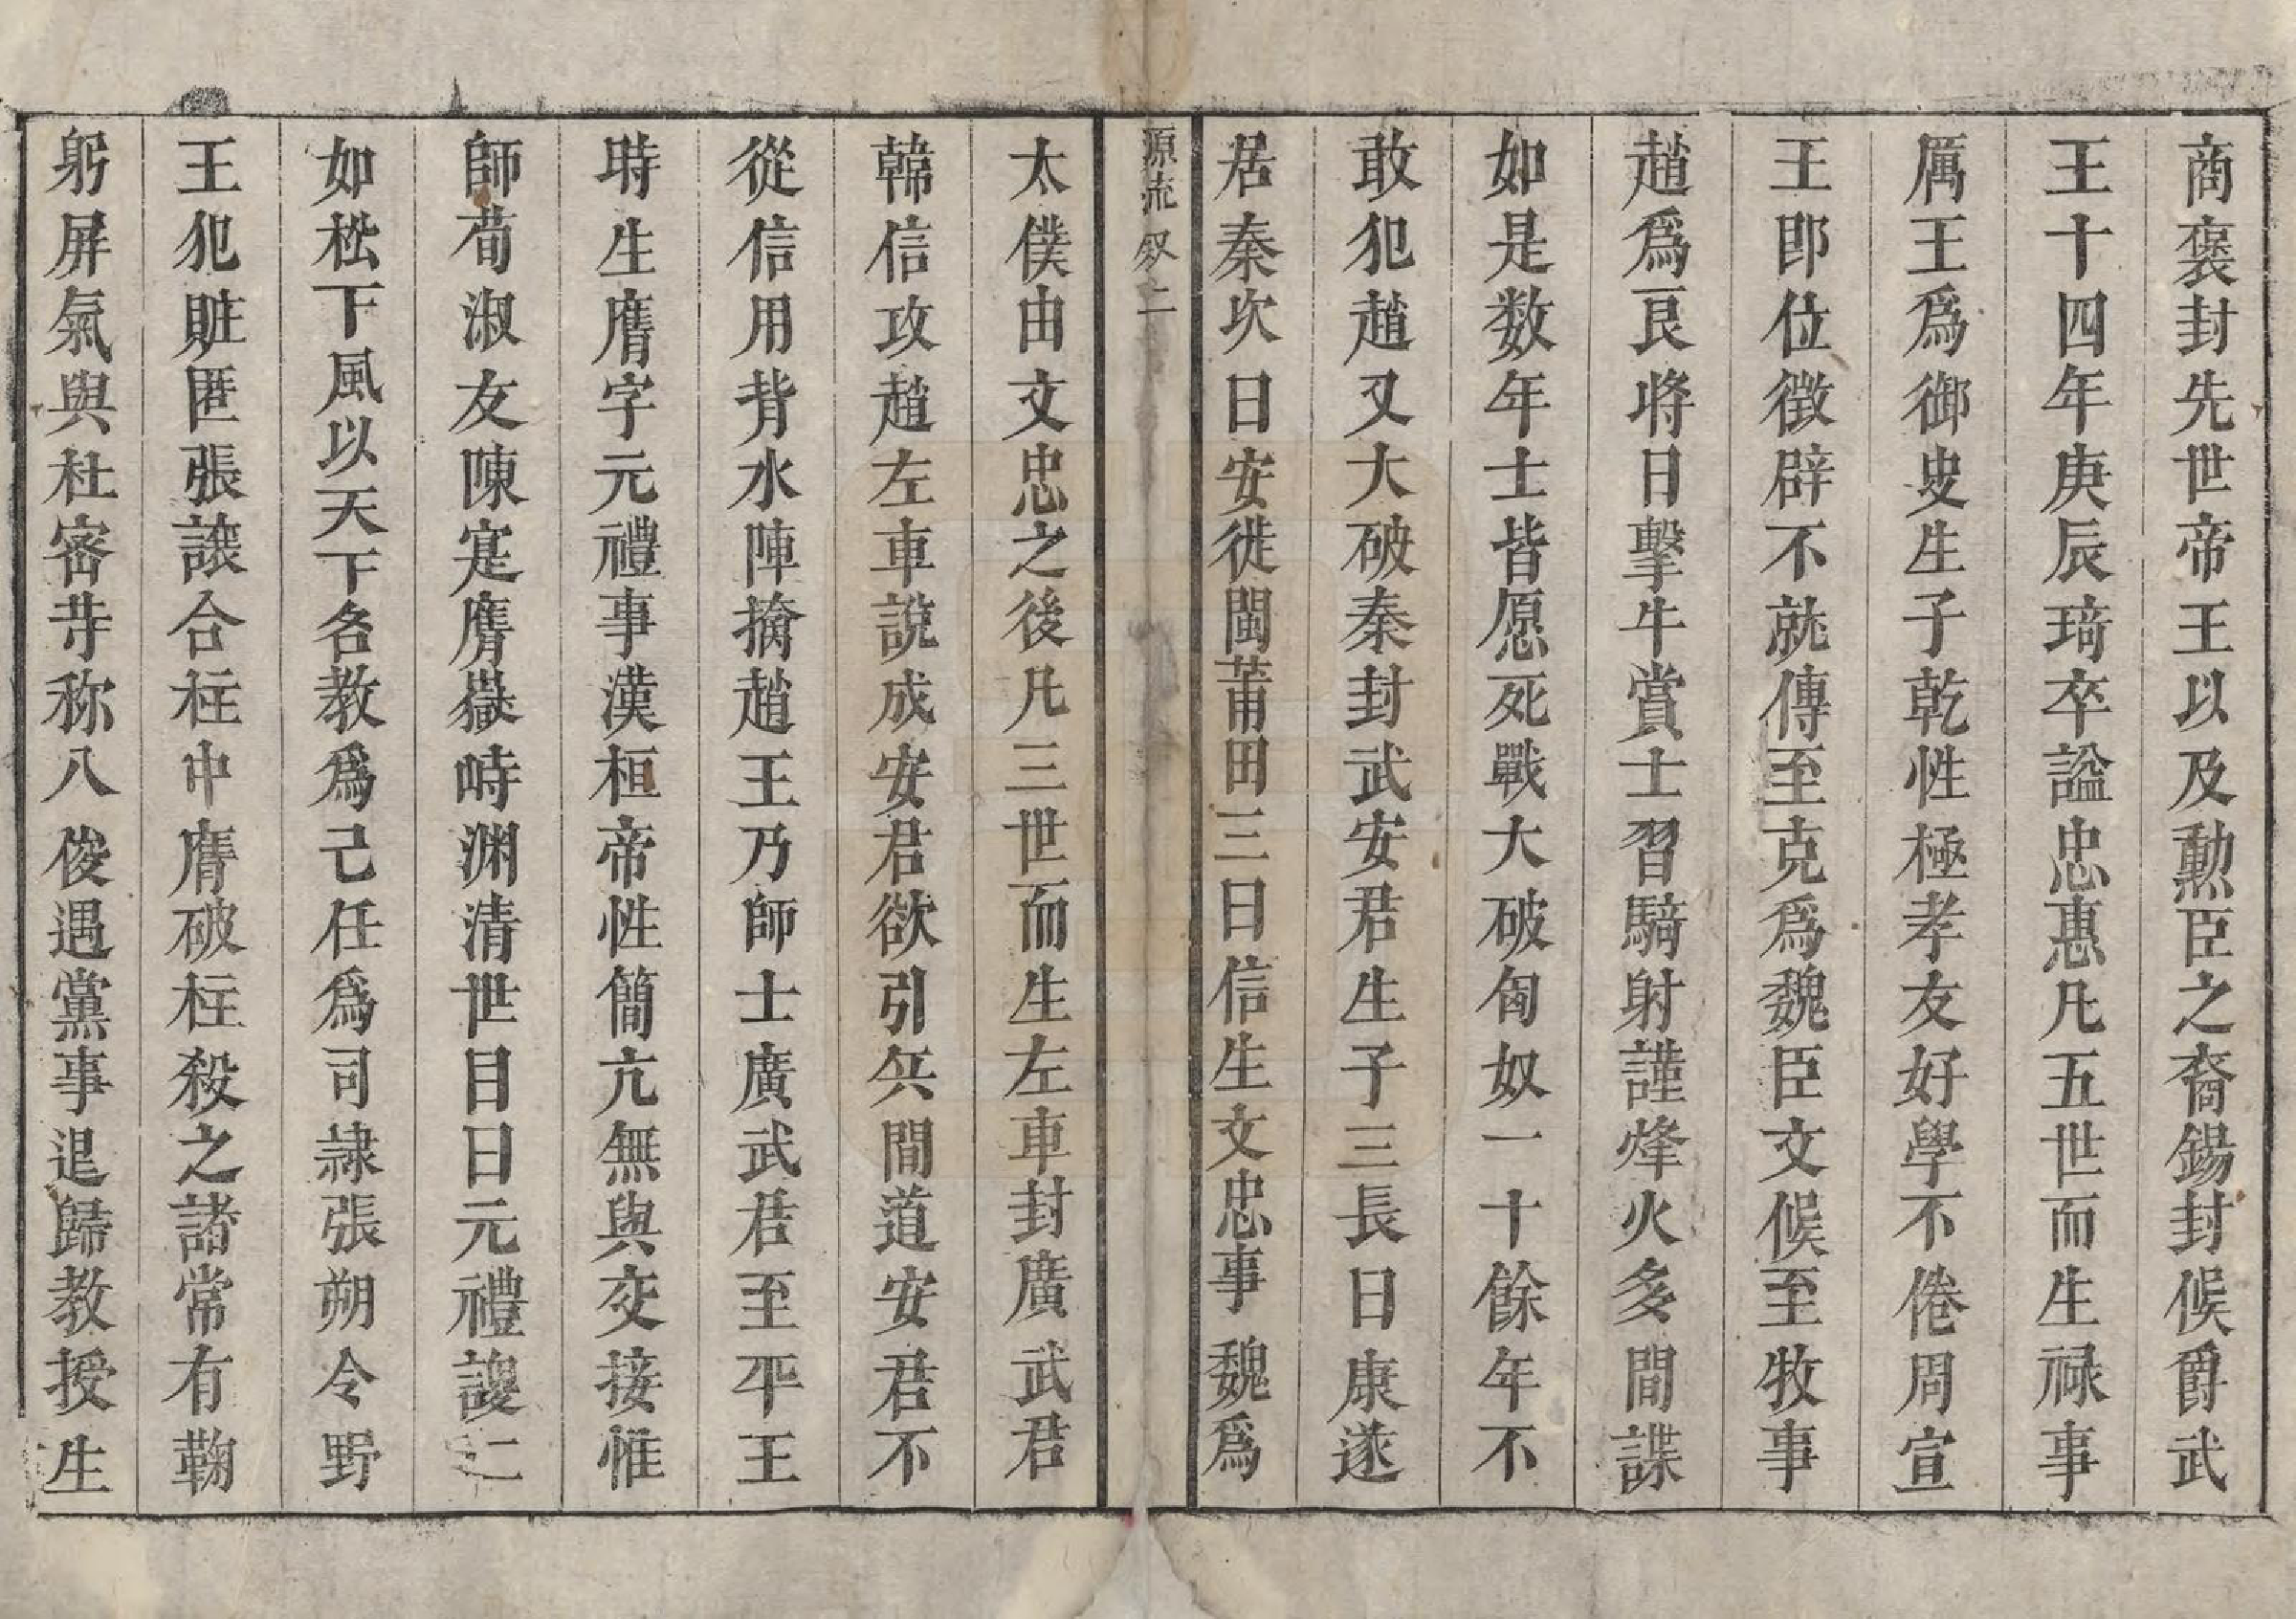 商褒封先世帝王以及勳臣之裔錫封候爵武
王十四年庚辰琦卒謚忠惠凡五世而生禄事
厲王爲御史生子乾性極孝友好學不倦周宣
王即位徵辟不就傳至克爲魏臣文候至牧事
趙爲良将日擊牛賞士習騎射謹烽火多間諜
如是数年士皆愿死戰大破匈奴一十餘年不
敢犯趙又大破秦封武安君生子三長曰康遂
居秦次曰安徙閩莆田三曰信生文忠事魏爲
源流 叙 二
太僕由文忠之後凡三世而生左車封廣武君
韓信攻趙左車說成安君欲引兵間道安君不
從信用背水陣擒趙王乃師士廣武君至平王
時生膺字元禮事漢桓帝性簡亢無與交接惟
師荀淑友陳寔膺嶽峙渊清世目曰元禮謖二
如松下風以天下名教爲己任爲司隷張朔令野
王犯賍匿張讓合柱中膺破柱殺之諸常有鞠
躬屏氣與杜密苛称八俊遇黨事退歸教授生